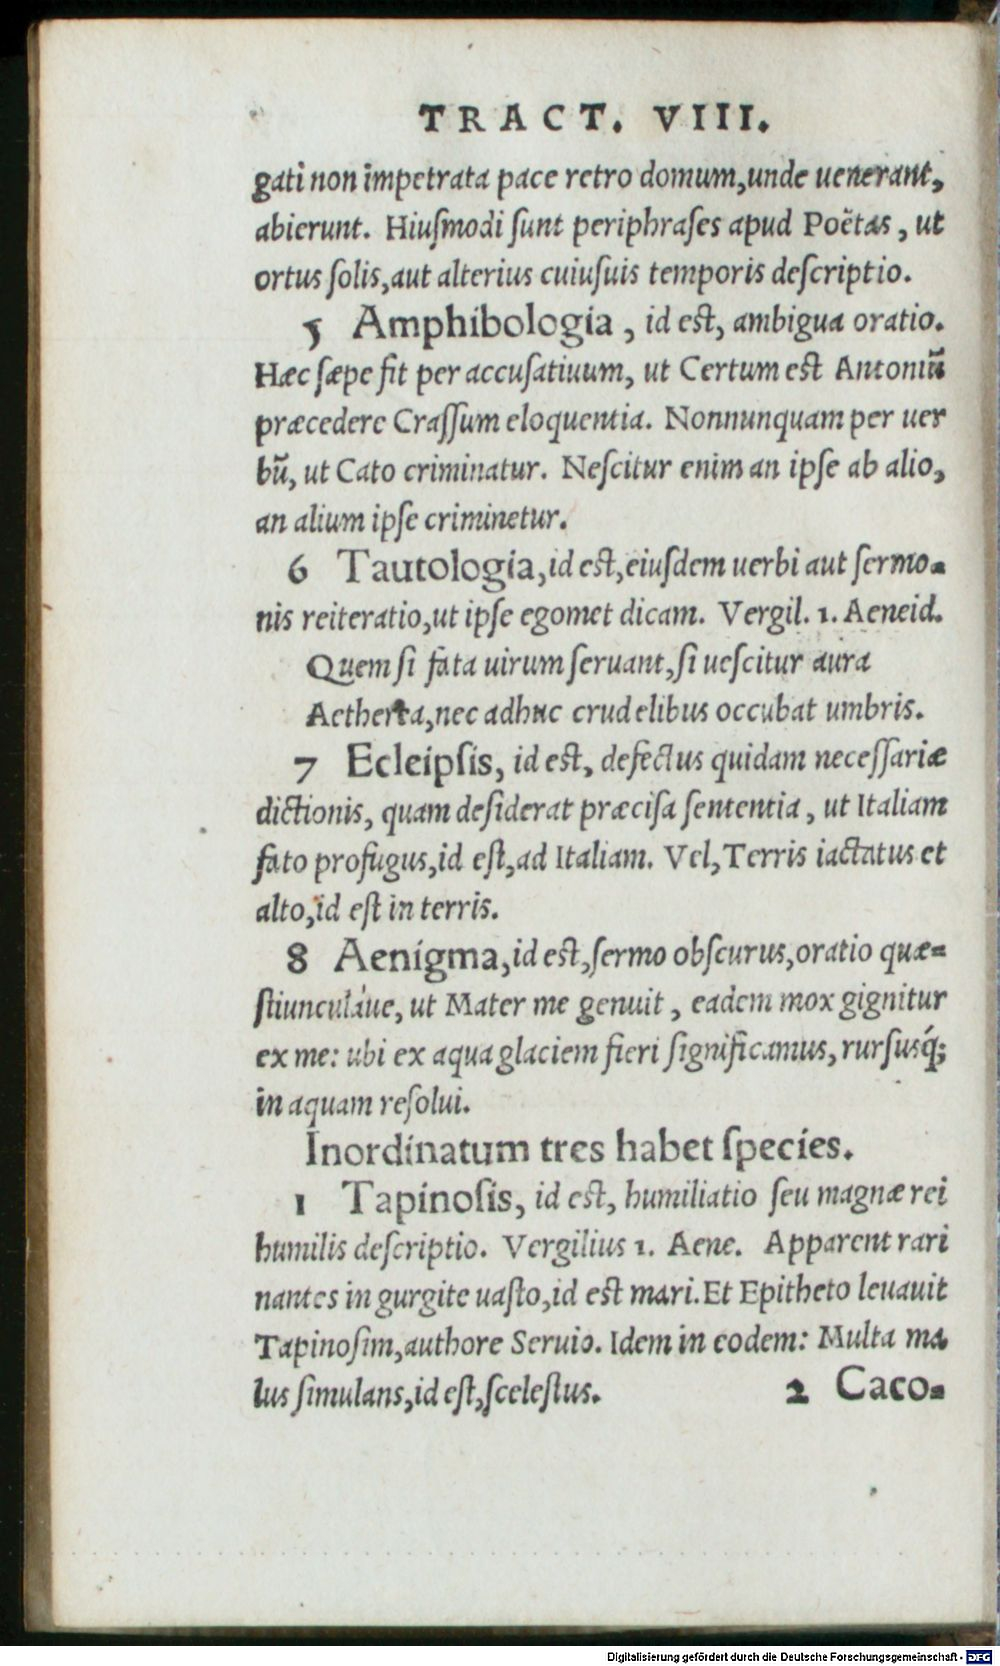 TRACT. VIII.
gati non impetrata pace retro domum, unde uenerant,
abierunt. Hiusmodi sunt periphrases apud Poëtas, ut
ortus solis, aut alterius cuiusuis temporis descriptio.
5 Amphibologia, id est, ambigua oratio.
Hæc sæpe fit per accusatiuum, ut Certum est Antoniũ
præcedere Crassum eloquentia. Nonnunquam per uer
bũ, ut Cato criminatur. Nescitur enim an ipse ab alio,
an alium ipse criminetur.
6 Tautologia, id est, eiusdem uerbi aut sermo-
nis reiteratio, ut ipse egomet dicam. Vergil. 1. Aeneid.
Quem si fata uirum seruant, si uescitur aura
Aetherea, nec adhuc crudelibus occubat umbris.
7 Ecleipsis, id est, defectus quidam necessariæ
dictionis, quam desiderat præcisa sententia, ut Italiam
fato profugus, id est, ad Italiam. Vel, Terris iactatus et
alto, id est in terris.
8 Aenigma, id est, sermo obscurus, oratio quæ-
stiunculáue, ut Mater me genuit, eadem mox gignitur
ex me: ubi ex aqua glaciem fieri significamus, rursusq́;
in aquam resolui.
Inordinatum tres habet species.
1 Tapinosis, id est, humiliatio seu magnæ rei
humilis descriptio. Vergilius 1. Aene. Apparent rari
nantes in gurgite uasto, id est mari. Et Epitheto leuauit
Tapinosim, authore Seruio. Idem in eodem: Multa ma
lus simulans, id est, scelestus. 2 Caco-
Digitalisierung gefördert durch die Deutsche Forschungsgemeinschaft - DFG